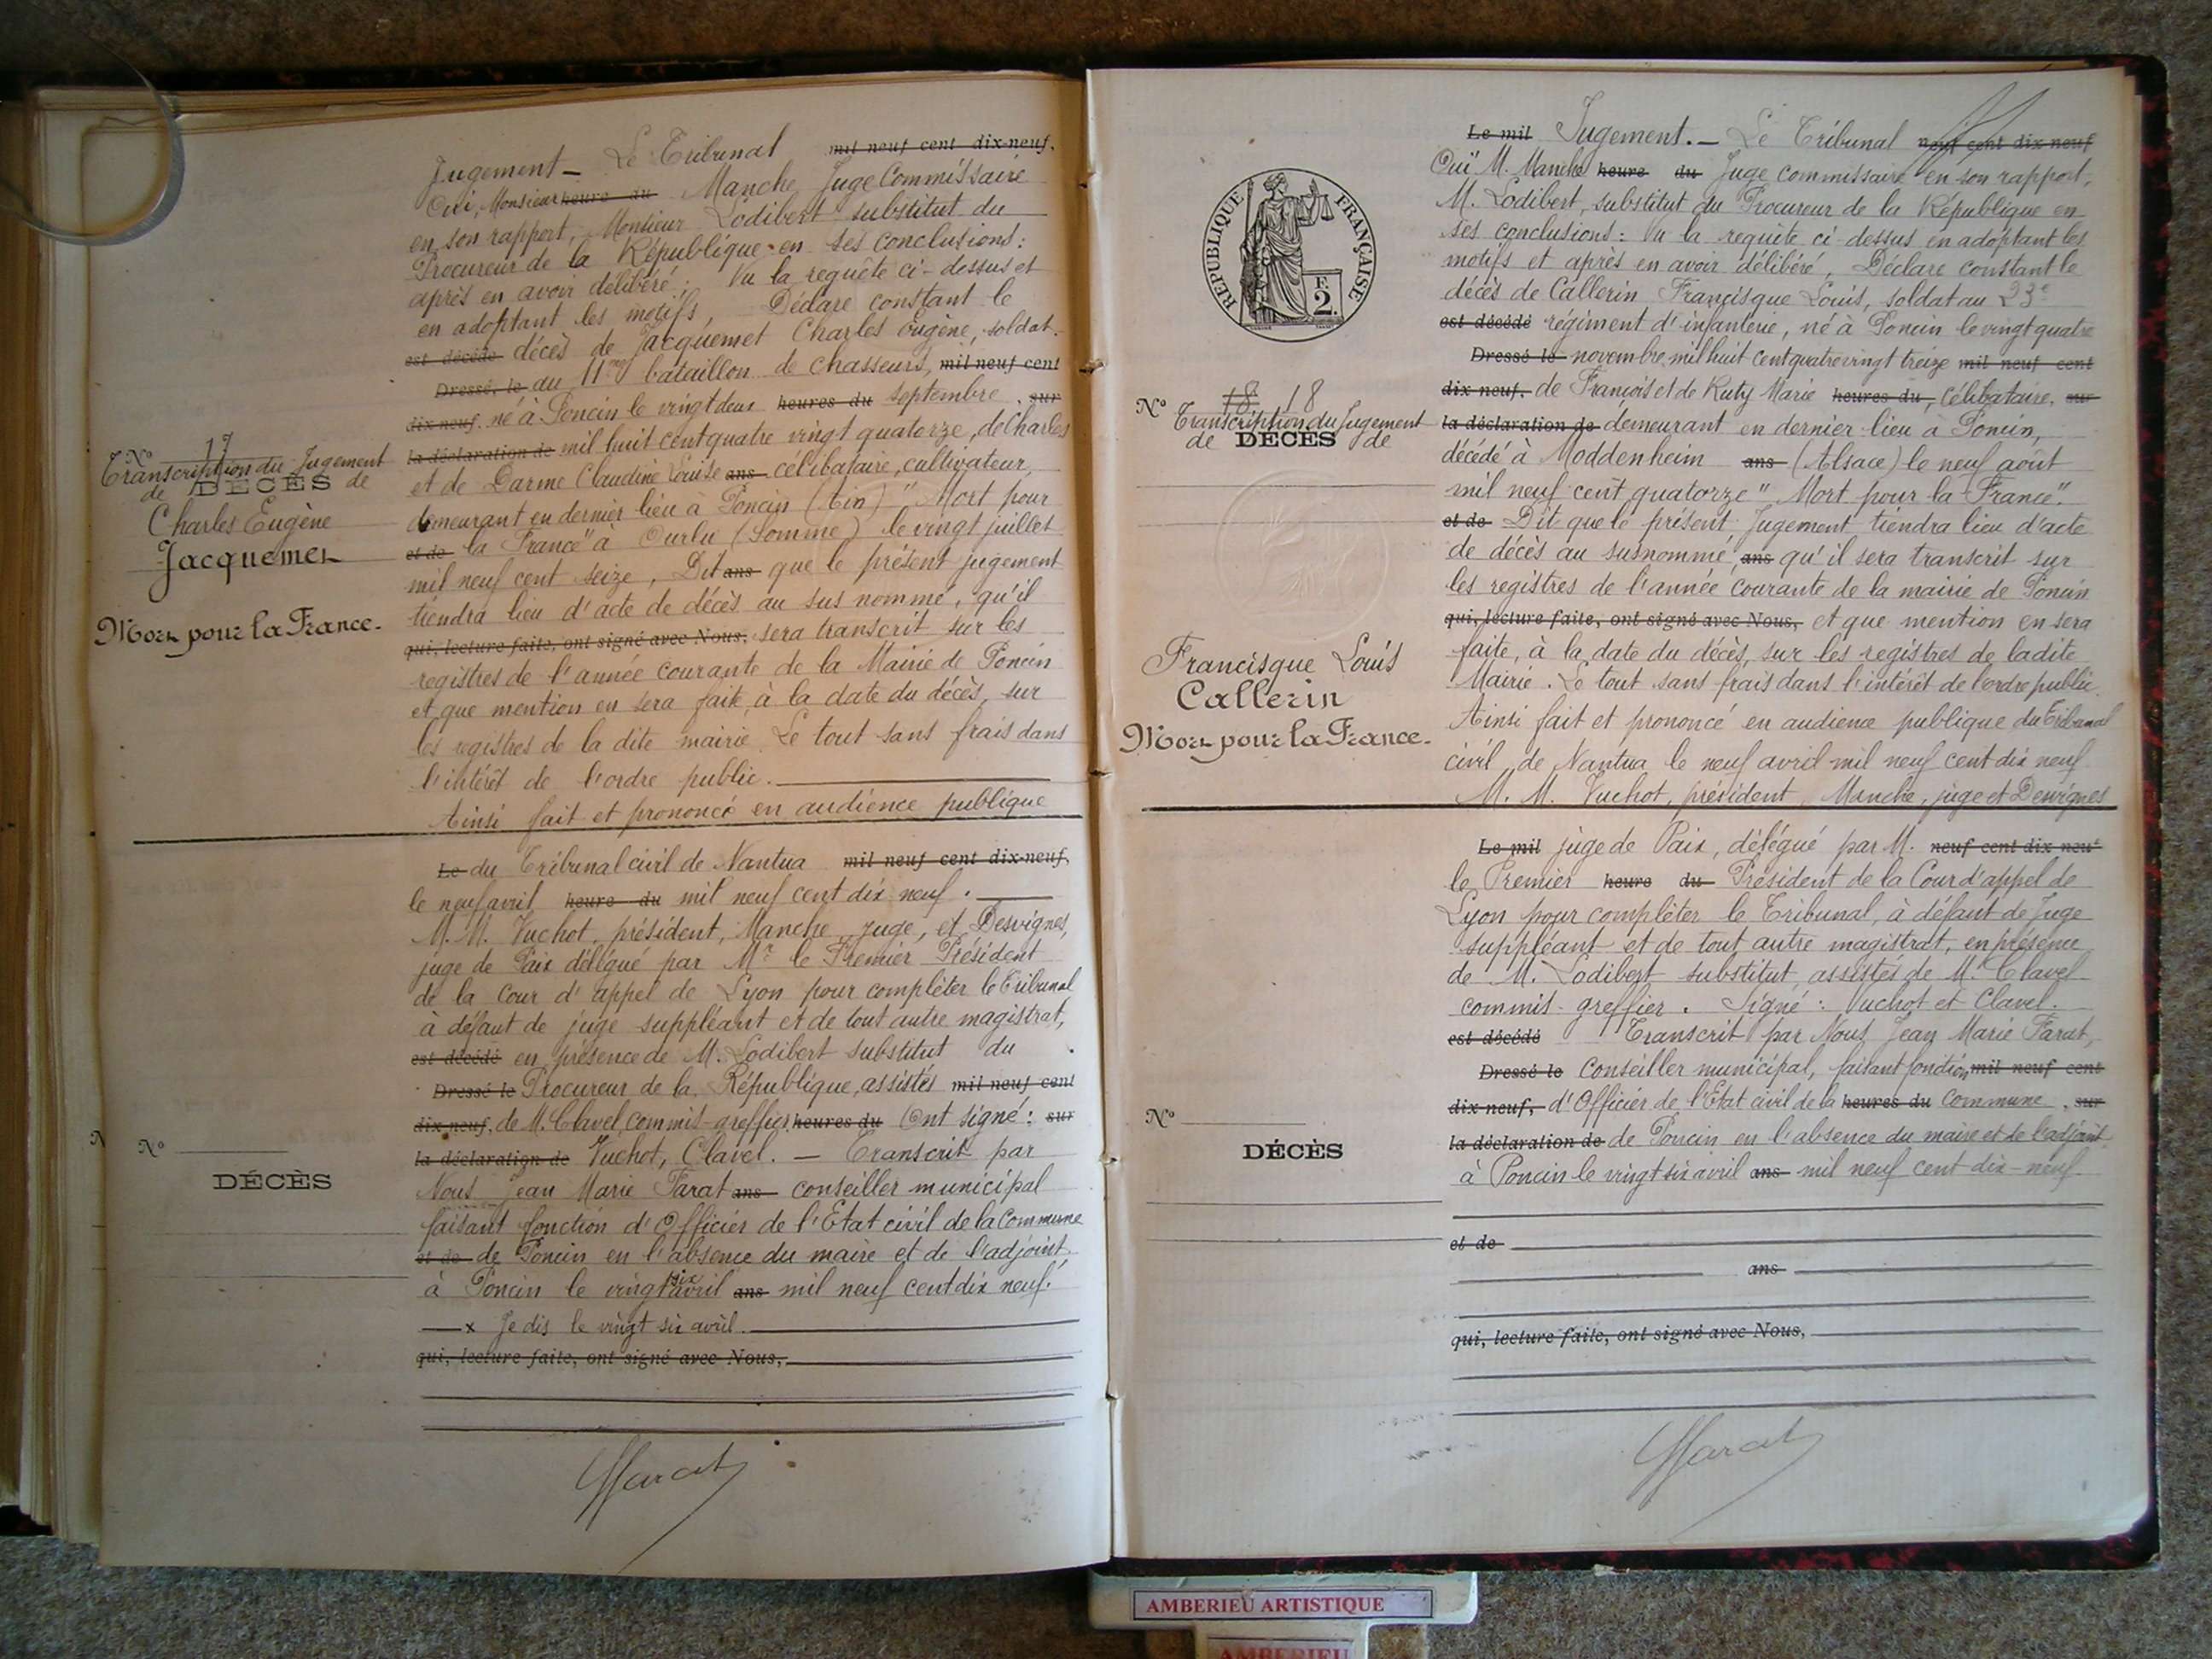 Jugement — Le Tribunal mil neuf cent dix-neuf,
Oui, Monsieur heure du Manche, Juge Commissaire
en son rapport, Monsieur Lodibert substitut du
Procureur de la République en ses conclusions:
après en avoir délibéré; Vu la requête ci-dessus et
en adoptant les motifs, Déclare constant le
est décédé décès de Jacquemet Charles Eugène, soldat
Dressé, le au 11me bataillon de Chasseurs, mil neuf cent
dix neuf, né à Poncin le vingt deux heures du septembre, sur
la déclaration de mil huit cent quatre vingt quatorze, de Charles
et de Darme Claudine Louise ans célibataire, cultivateur,
demeurant en dernier lieu à Poncin (Ain) "Mort pour
et de la France" à Curlu (Somme) le vingt juillet
mil neuf cent seize, Dit ans que le présent jugement
tiendra lieu d'acte de décès au sus nommé, qu'il
qui, lecture faite, ont signé avec Nous, sera transcrit sur les
registres de l'année courante de la Mairie de Poncin
et que mention en sera faite, à la date du décès, sur
les registres de la dite mairie. Le tout sans frais dans
l'intérêt de l'ordre public.
Ainsi fait et prononcé en audience publique
N° 17
Transcription du Jugement
de DÉCÈS de
Charles Eugène
Jacquemet
Mort pour la France.
Le du Tribunal civil de Nantua mil neuf cent dix-neuf,
le neuf avril heure du mil neuf cent dix neuf.
M. M. Vuchot, président, Manche, juge, et Desvignes,
juge de Paix délégué par Mr le Premier Président
de la Cour d'appel de Lyon pour compléter le Tribunal
à défaut de juge suppléant et de tout autre magistrat,
est décédé en présence de M. Lodibert substitut du
Dressé le Procureur de la République, assistés mil neuf cent
dix neuf, de M. Clavel, commis-greffier heures du Ont signé: sur
la déclaration de Vuchot, Clavel. — Transcrit par
Nous Jean Marie Farat ans conseiller municipal
faisant fonction d'Officier de l'Etat civil de la Commune
et de de Poncin en l'absence du maire et de l'adjoint,
à Poncin le vingt six avril ans mil neuf cent dix neuf.
x Je dis le vingt six avril.
qui, lecture faite, ont signé avec Nous,
N°
DÉCÈS
Farat
Le mil Jugement. — Le Tribunal neuf cent dix neuf
Ouï M. Manche heure du Juge commissaire en son rapport,
M. Lodibert, substitut du Procureur de la République en
ses conclusions: Vu la requête ci-dessus en adoptant les
motifs et après en avoir délibéré, Déclare constant le
décès de Callerin Francisque Louis, soldat au 23e
est décédé régiment d'infanterie, né à Poncin le vingt quatre
Dressé le novembre mil huit cent quatre vingt treize mil neuf cent
dix neuf, de François et de Ruty Marie heures du, Célibataire, sur
la déclaration de demeurant en dernier lieu à Poncin,
décédé à Moddenheim ans (Alsace) le neuf août
mil neuf cent quatorze "Mort pour la France".
et de Dit que le présent Jugement tiendra lieu d'acte
de décès au susnommé, ans qu'il sera transcrit sur
les registres de l'année courante de la mairie de Poncin
qui, lecture faite, ont signé avec Nous, et que mention en sera
faite, à la date du décès, sur les registres de ladite
Mairie. Le tout sans frais dans l'intérêt de l'ordre public.
Ainsi fait et prononcé en audience publique du Tribunal
civil de Nantua le neuf avril mil neuf cent dix neuf
M. M. Vuchot, président, Manche, juge et Desvignes
REPUBLIQUE FRANÇAISE
F.
2.
N° 18 18
Transcription du Jugement
de DÉCÈS de
Francisque Louis
Callerin
Mort pour la France.
Le mil juge de Paix, délégué par M. neuf cent dix neuf
le Premier heure du Président de la Cour d'appel de
Lyon pour compléter le Tribunal, à défaut de Juge
suppléant et de tout autre magistrat, en présence
de M. Lodibert substitut, assistés de M. Clavel
commis-greffier. Signé: Vuchot et Clavel.
est décédé Transcrit par Nous Jean Marie Farat,
Dressé le Conseiller municipal, faisant fonction mil neuf cent
dix neuf, d'Officier de l'Etat civil de la heures du Commune, sur
la déclaration de de Poncin en l'absence du maire et de l'adjoint
à Poncin le vingt six avril ans mil neuf cent dix-neuf.
et de
ans
qui, lecture faite, ont signé avec Nous,
N°
DÉCÈS
Farat
AMBERIEU ARTISTIQUE
AMBERIEU